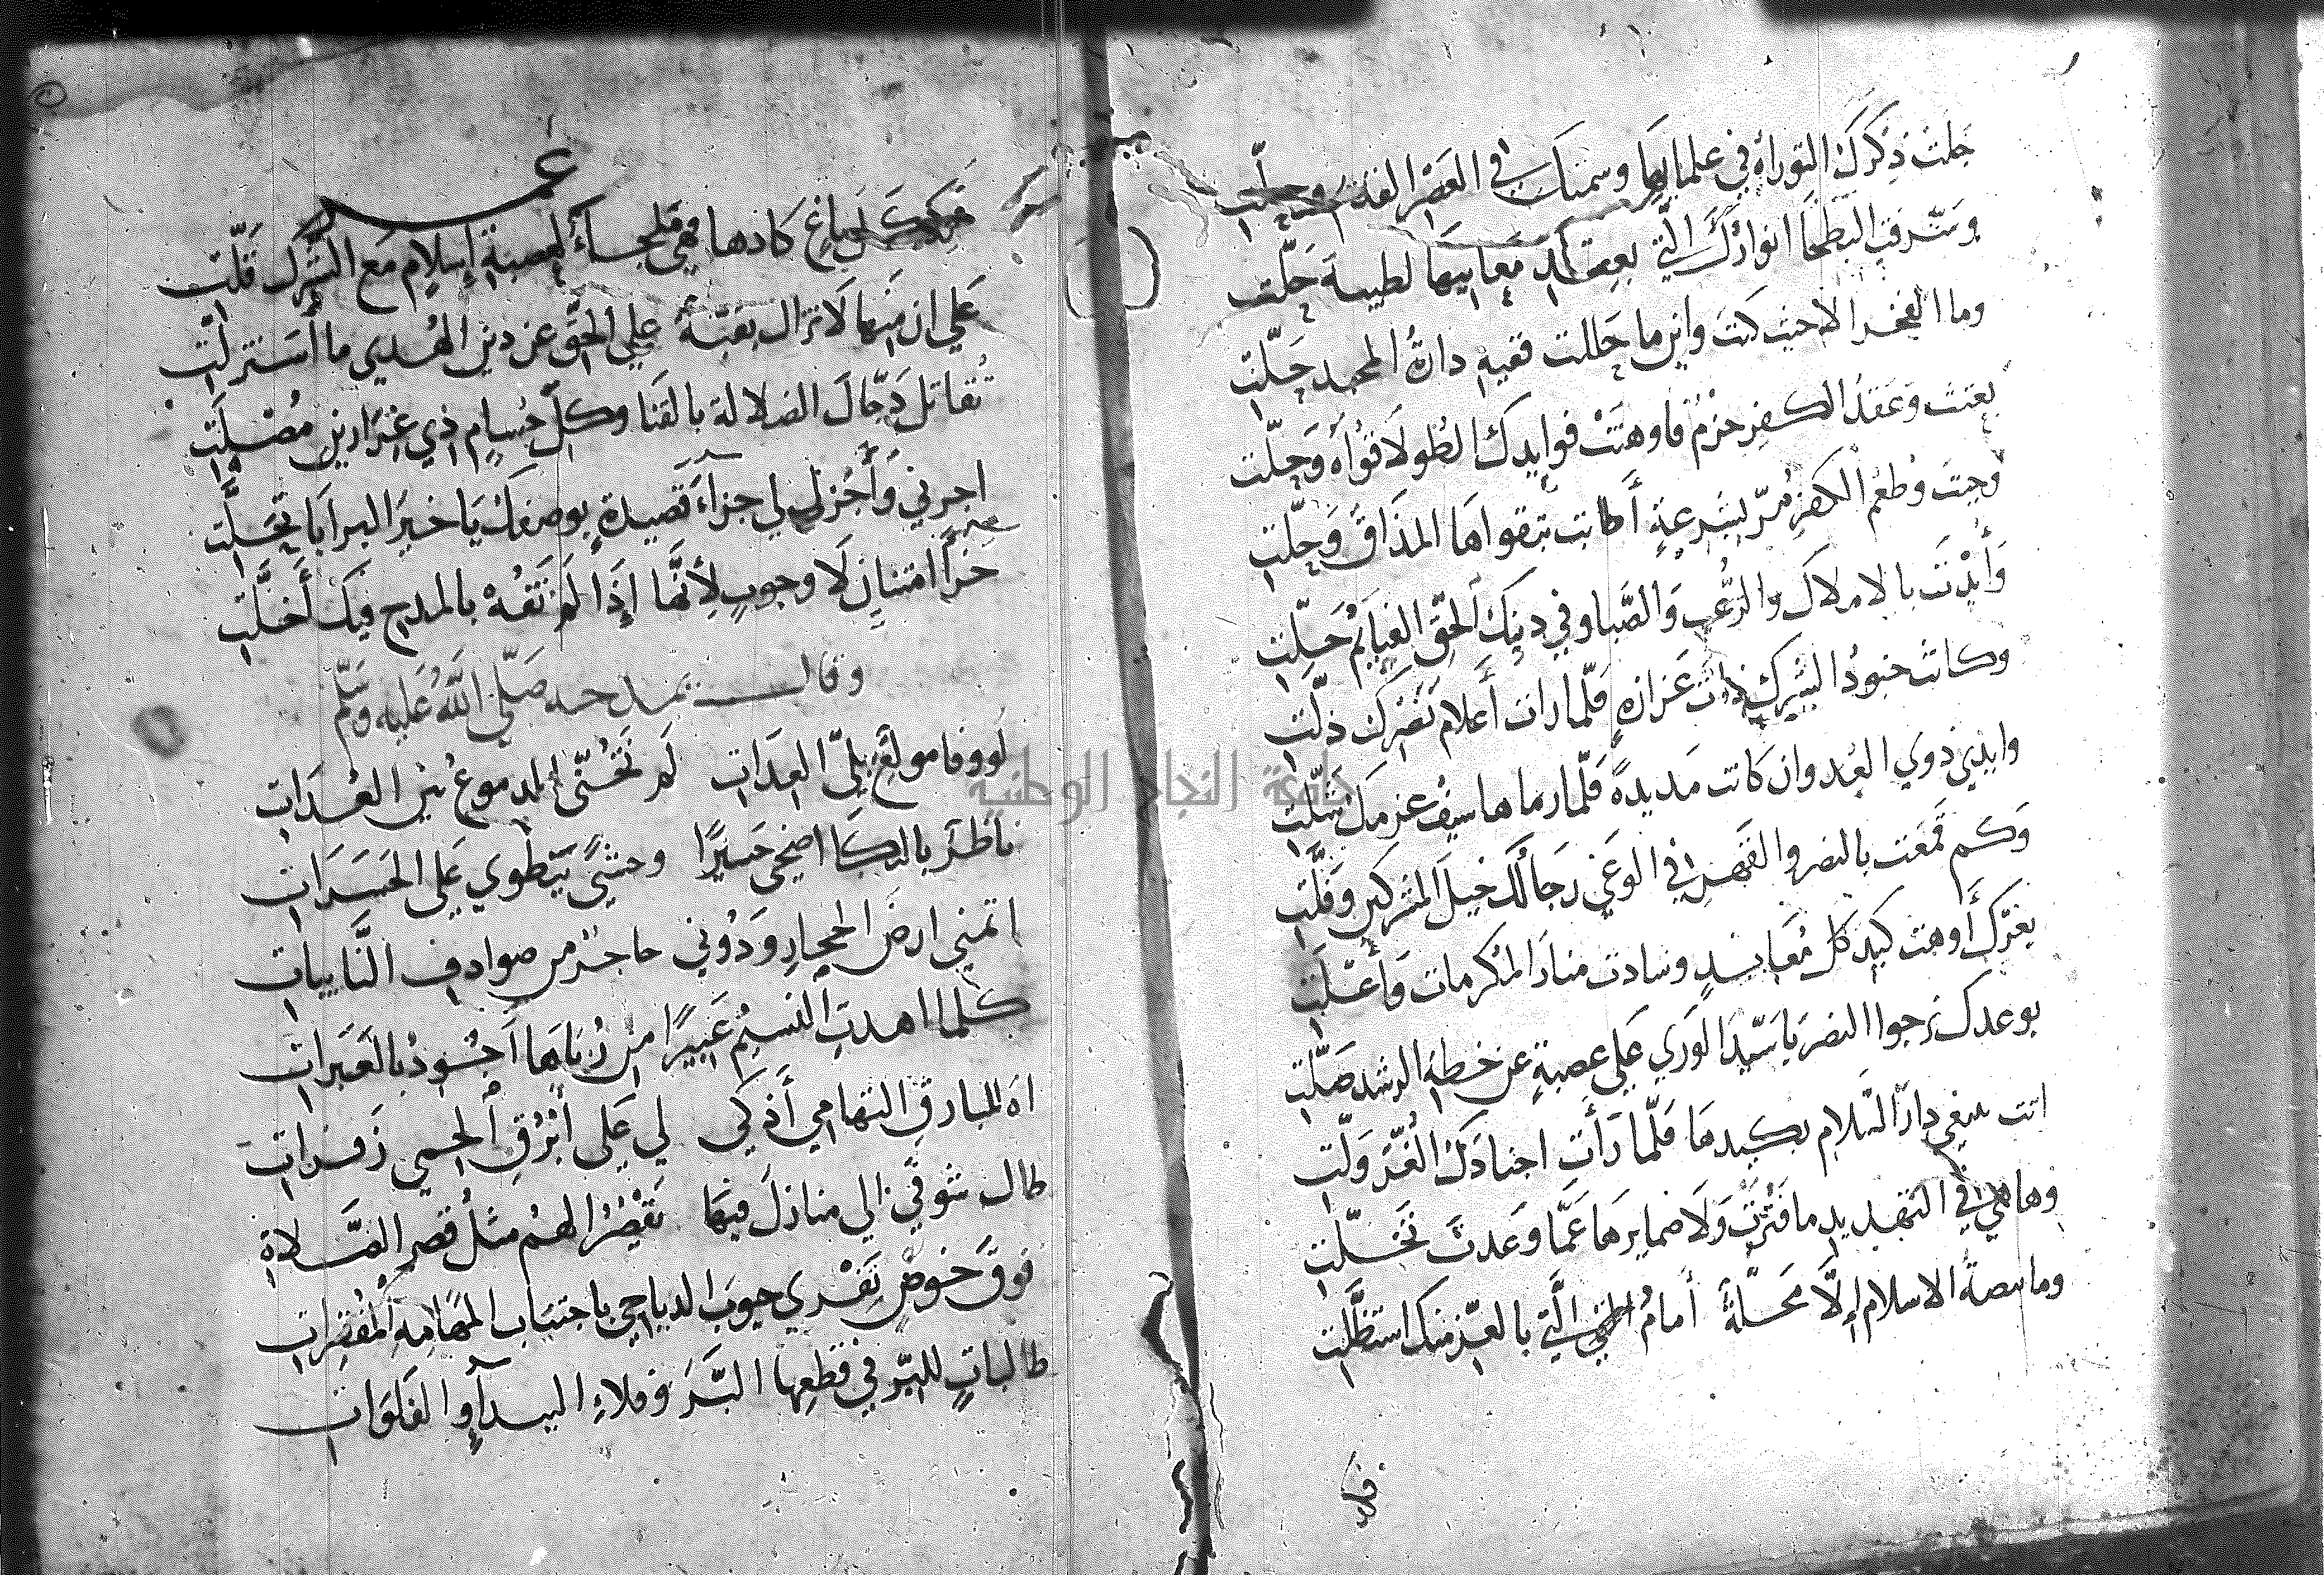 جلت ذكرك التوراة في علمائها وسمتك في العصر القديم وجلت
وشرفت البطحا انوارك التي بعثت لدى معانيها لطيبة حلت
وما الفخر الا حيث كنت واين ما حللت ففيه دارة المجد حلت
بعثت وعقد الكفر حزم فاوهنت فوايدك الطولا قواه وحلت
وجيت وطعم الكفر مر بشرعة أطابت بتقواها المذاق وحلت
وأيدت بالاملاك والرعب والصبا وفي دينك الحق الغنايم حلت
وكانت جنود الشرك ذات عزازة فلما رات أعلام نصرك ذلت
وايدي ذوي العدوان كانت مديدة فلما رماها سيف عزمك شلت
وكم قمعت بالنصر والقهر في الوغي رجالك خيل المشركين وفلت
بعزك أوهت كيد كل معاند وشادت منار المكرمات وأعلت
بوعدك نرجوا النصر يا سيد الوري علي عصبة عن خطة الرشد ضلت
اتت تبتغي دار السلام بكيدها فلما رأت اجنادك الغر ولت
وها هي في التهديد ما فترت ولا ضمايرها عما وعدت تخلت
وما بيضة الاسلام إلا محلة أمام التي بالعز منك استظلت
فكن
عمر
فكن لباغ كادها فهي ملجأ لعصبة إسلام مع الشرك قلت
علي ان منها لا تزال بقية علي الحق عن دين الهدي ما استزلت
تقاتل دجال الضلالة بالقنا وكل حسام ذي غرارين مصلت
اجرني وأجزل لي جزاء قصيدة بوصفك يا خير البرايا تحلت
جزا امتنان لا وجوب لأنها إذا لم تفه بالمدح فيك أخلت
وقال يمدحه صلى الله عليه وسلم
لو وفا مولع بلي العدات لم تخني الدموع بين العدات
ناظر بالبكا اضحى حسيرا وحشي ينطوي علي الحسرات
اتمني ارض الحجاز ودوني حاجز من صوادف النايبات
كلما اهدت النسيم عبيرا من رباها أجود بالعبرات
اه للبارق التهامي أذكي لي علي أبرق الحمي زفرات
طال شوقي الي منازل فيها تقصر الهم مثل قصر الصلاة
فوق خوص تفري جيوب الدياجي باجتياب المهامه المقفرات
طالبات للبر في قطعها البر وفلاء البيداء والفلوات